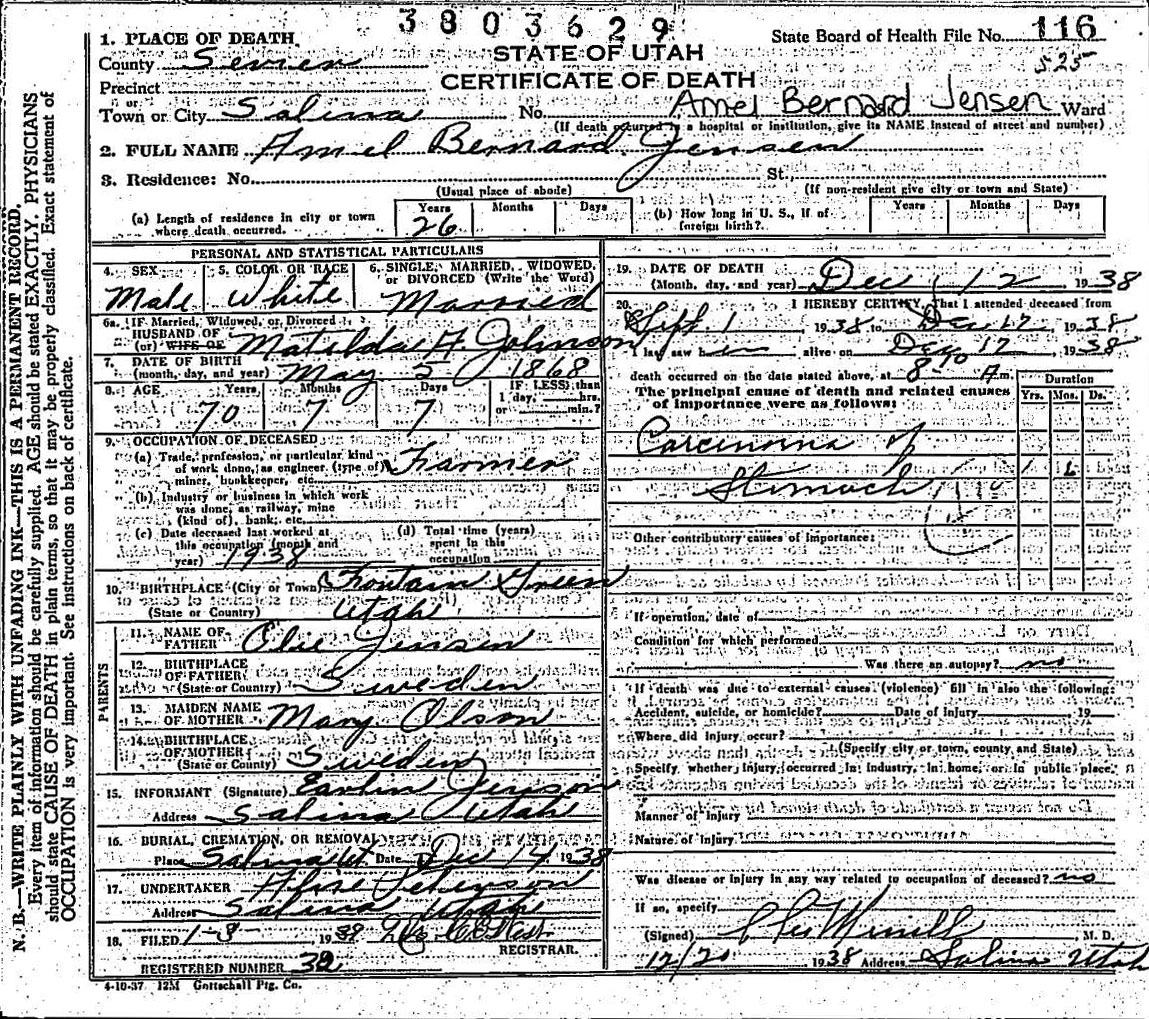 3803629
State Board of Health File No. 116
525
1. PLACE OF DEATH
STATE OF UTAH
County Sevier
CERTIFICATE OF DEATH
Precinct
or
Town or City Salina No. Amel Bernard Jensen Ward
(If death occurred in a hospital or institution, give its NAME instead of street and number)
2. FULL NAME Amel Bernard Jensen
3. Residence: No. St.
(Usual place of abode) (If non-resident give city or town and State)
(a) Length of residence in city or town where death occurred. Years 26 Months Days
(b) How long in U. S., if of foreign birth? Years Months Days
PERSONAL AND STATISTICAL PARTICULARS
4. SEX Male
5. COLOR OR RACE White
6. SINGLE, MARRIED, WIDOWED, or DIVORCED (Write the Word) Married
6a. IF Married, Widowed, or Divorced
HUSBAND OF
(or) WIFE OF Matilda A Johnson
7. DATE OF BIRTH
(month, day, and year) May 5 1868
8. AGE Years 70 Months 7 Days 7 IF LESS than 1 day, hrs. or min.?
9. OCCUPATION OF DECEASED
(a) Trade, profession, or particular kind
of work done, as engineer (type of) Farmer
miner, bookkeeper, etc.
(b) Industry or business in which work
was done, as railway, mine
(kind of), bank, etc.
(c) Date deceased last worked at
this occupation (month and
year) 1938
(d) Total time (years)
spent in this
occupation
10. BIRTHPLACE (City or Town) Fountain Green
(State or Country) Utah
PARENTS
11. NAME OF
FATHER Olie Jensen
12. BIRTHPLACE
OF FATHER
(State or Country) Sweden
13. MAIDEN NAME
OF MOTHER Mary Olson
14. BIRTHPLACE
OF MOTHER
(State or County) Sweden
15. INFORMANT (Signature) Jenson
Address Salina Utah
16. BURIAL, CREMATION, OR REMOVAL
Place Salina Ut. Date Dec 14 1938
17. UNDERTAKER
Address Salina Utah
18. FILED 1-3 1939
REGISTRAR.
REGISTERED NUMBER 32
4-10-37 12M Gottschall Ptg. Co.
19. DATE OF DEATH
(Month, day, and year) Dec 12 1938
20. I HEREBY CERTIFY, That I attended deceased from
Sept. 1 1938 to Dec 12, 1938
I last saw h alive on Dec 12, 1938
death occurred on the date stated above, at 8 A m.
The principal cause of death and related causes
of importance were as follows:
Duration
Yrs. Mos. Ds.
Carcinoma of
Stomach
Other contributory causes of importance:
If operation, date of
Condition for which performed
Was there an autopsy? no
If death was due to external causes (violence) fill in also the following:
Accident, suicide, or homicide? Date of injury 19
Where did injury occur?
(Specify city or town, county and State)
Specify whether injury occurred in industry, in home, or in public place.
Manner of Injury
Nature of Injury
Was disease or injury in any way related to occupation of deceased? no
If so, specify
(Signed) M. D.
12/20 1938 Address Salina Utah
N. B.—WRITE PLAINLY WITH UNFADING INK—THIS IS A PERMANENT RECORD.
Every item of information should be carefully supplied. AGE should be stated EXACTLY. PHYSICIANS
should state CAUSE OF DEATH in plain terms, so that it may be properly classified. Exact statement of
OCCUPATION is very important. See instructions on back of certificate.